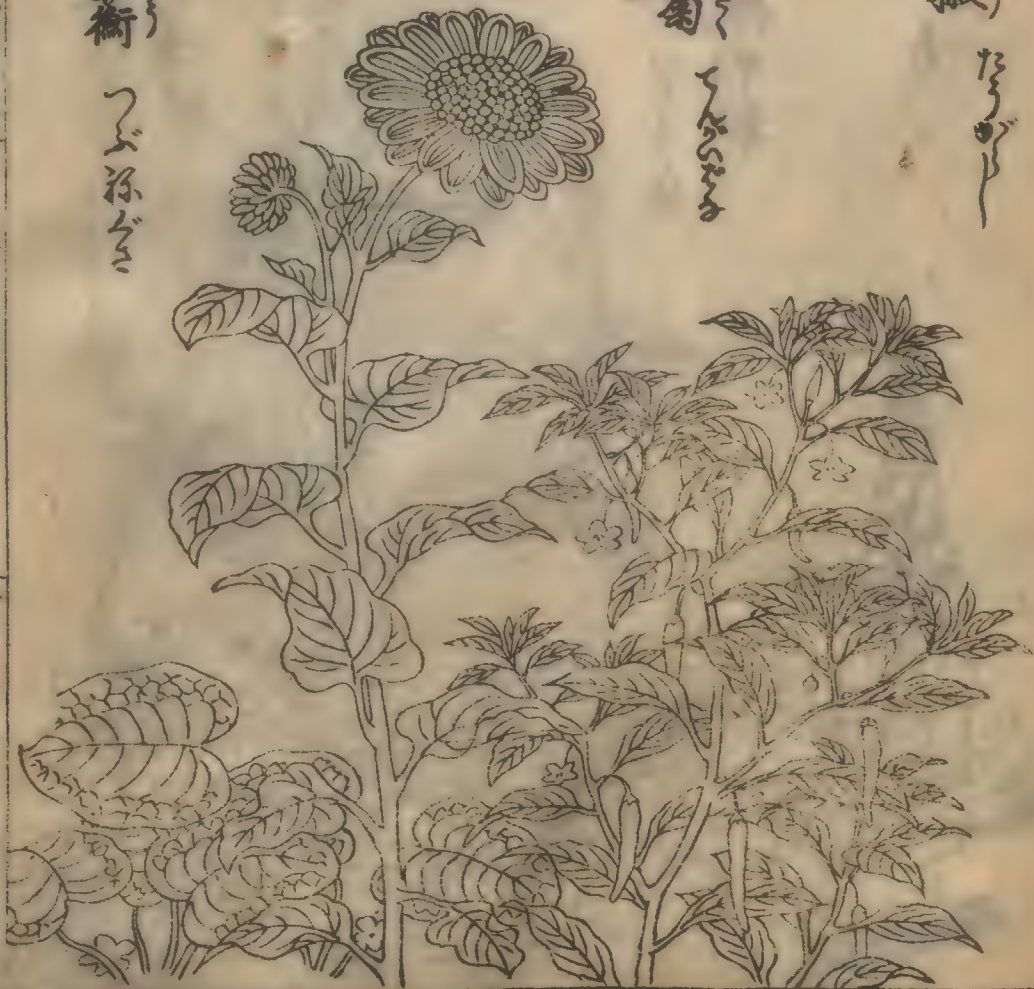 たうがらし
菊 く てんがいばな
う つぶねぐさ